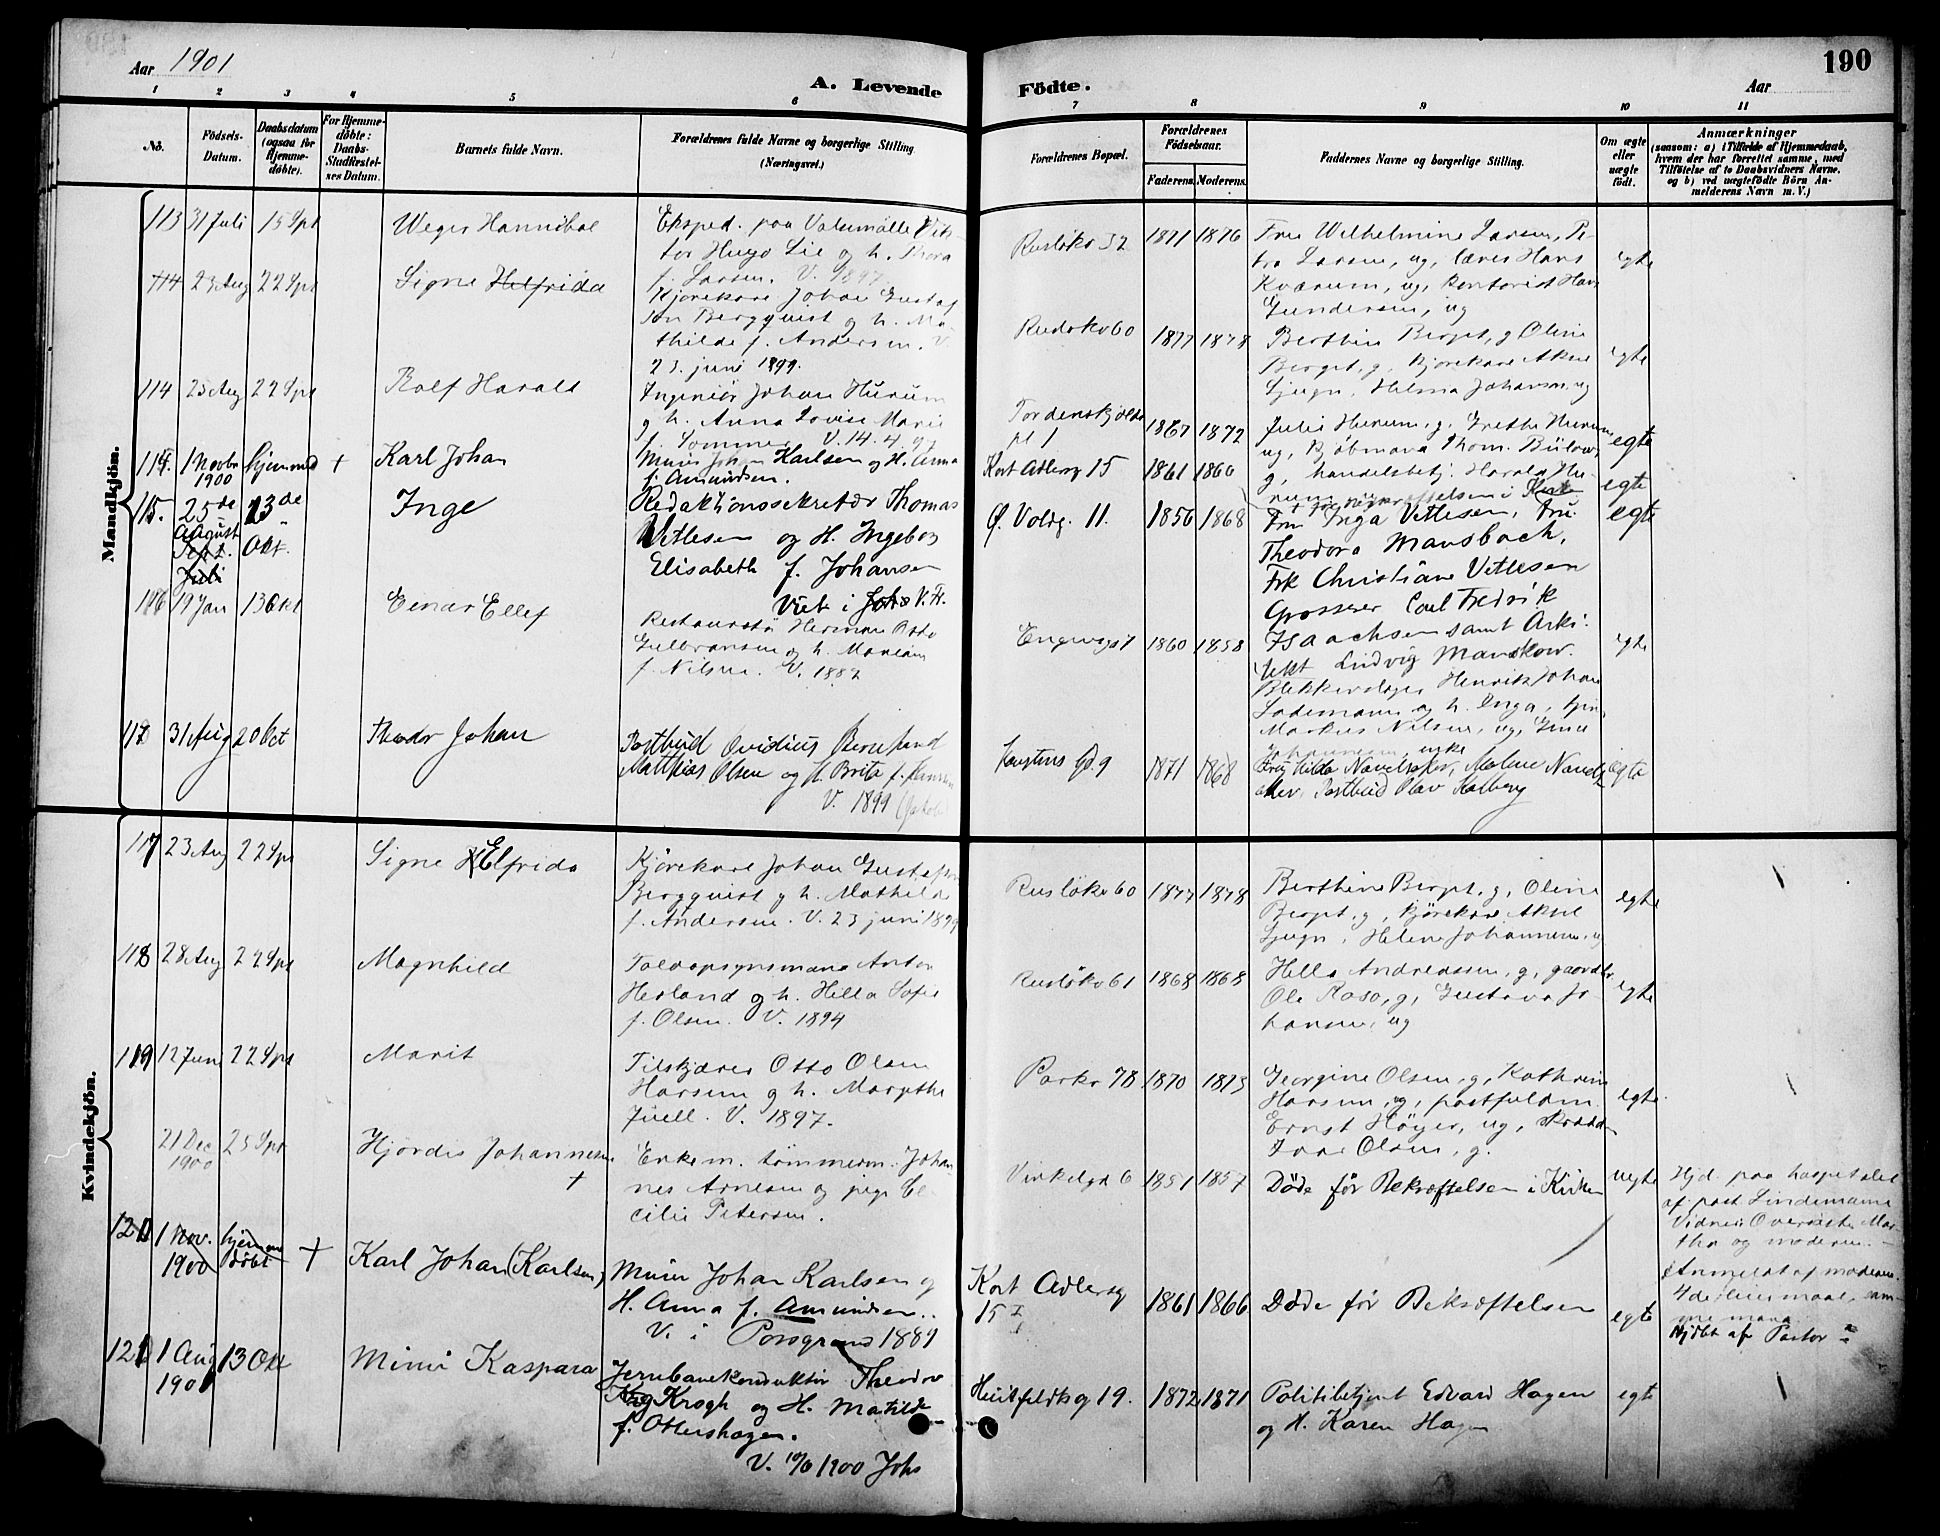 Aar 1901
A. Levende
Födte.
Aar
190
1 2 3 4 5 6 7 8 9 10 11
No.
Födsels-
Datum.
Daabsdatum
(ogsaa for
Hjemme-
döbte).
For Hjemme-
döbte:
Daabs-
Stadfæstel-
ses Datum.
Barnets fulde Navn.
Forældrenes fulde Navne og borgerlige Stilling
(Næringsvei.)
Forældrenes Bopæl.
Forældrenes
Födselsaar.
Faderens.
Moderens.
Faddernes Navne og borgerlige Stilling.
Om ægte
eller
uægte
födt.
Anmærkninger
(saasom: a) i Tilfælde af Hjemmedaab,
hvem der har forrettet samme, med
Tilföielse af to Daabsvidners Navne,
og b) ved uægtefödte Börn An-
melderens Navn m. V.)
Mandkjön.
113 31 Juli 15 Spt
Eksped. paa Valsemølle Vik-
tor Hugo Lie og h. Thora
f. Larsen. V. 1897
Rusløkv 32 1871 1876
Fru Wilhelmine Larsen, Pe-
tra Larsen, ug, lærer Hans
Kværum, ug, Kontorist Hans
Gundersen, ug
egte
114 23 Aug 22 Spt
Signe Helfrida
Kjørekarl Johan Gustaf
son Bergquist og h. Ma-
thilde f. Andersen. V.
23. juni 1899.
Rusløkv 60 1877 1878
Berthine Bergst, g, Oline
Bergst, g, Kjørekarl Aksel
Ljugn, Helma Johansen, ug
egte
114 25 Aug 22 Spt
Rolf Harald
Ingeniør Johan Hurum
g h. Anna Lovise Marie
f. Sommer V. 14.4.97
Tordenskjolds
pl 1
1867 1872
Julie Hurum, g. Grethe Hurum,
ug, Kjøbmand Thom. Bülow,
g, handelsbetj. Harald Hu-
rum
egte
114. 1 Novbr
1900
hjemmed +
Karl Johan
Murer Johan Karlsen og H. Anna
f. Amundsen.
Kort Adlersg 15 1861 1860
+ før bekræftelsen i Kirke
egte
115. 25de
August
Sept.
Juli
13de
Okt.
Inge
Redaktionssekretær Thomas
Vetlesen og H. Ingeborg
Elisabeth f. Johansen
Viet i Johs V. Fr.
Ø. Voldg. 11. 1856 1868
Fru Inga Vetlesen, Fru
Theodora Mansbach,
Frk Christiane Vetlesen
Grosserer Carl Fredrik
Isaachsen samt Arki-
tekt Ludvig Manskow.
egte
116 19 Jan 13 Okt
Einar Ellef
Restauratør Herman Otto
Gulbransen og h. Mariane
f. Nilsen. V. 1887
1860 1858
Blikkenslager Henrik Johan
Lademann og h. Inga,
Markus Nilsen, ug, Gina
Johannesen, enke
egte
117 31 Aug 20 Oct
Theodor Johan
Postbud Ovidius Bernhard
Matthias Olsen og H. Brita f. Hansen
V. 1899
Karstens Gd. 9 1871 1868
Frøk Hilda Navelsaker, Malene Navels-
aker, Postbud Olav Kolberg
egte
Kvindekjön.
117 23 Aug 22 Spt
Signe Elfrida
Kjørekarl Johan Gustafson
Bergquist g h. Mathilde
f. Andersen. V. 23 juni 1899
Rusløkv 60 1877 1878
Berthine Bergst, g, Oline
Bergst, g, Kjørekarl Aksel
Ljugn, Helene Johannesen, ug
egte
118 28 Aug 22 Spt
Magnhild
Toldopsynsmand Anton
Herland g h. Hilla Sofie
f. Olsen. V. 1894
Rusløkv 61 1868 1868
Hella Andreassen, g, gaardbr
Ole Raso, g, Gustava Jo-
hansen, ug
egte
119 12 Juni 22 Spt
Marit
Tilskjærer Otto Olsen
Harsem g h. Margthe
Juell. V. 1897.
Parkv 78 1870 1873
Georgine Olsen, g, Kathrine
Harsem, ug, postfuldm.
Ernst Høyer, ug, Skrædder
Ivar Olsen, g.
egte
21 Dec
1900
25 Spt
Hjørdis Johannesen
+
Enkem. tømmerm. Johan
nes Arnesen og pige Ce-
cilie Petersen.
Vinkelgd 6 1851 1857
Døde før Bekræftelsen i Kirken
uegte
Hjd. paa hospitalet
af past Lindemann
Vidner: Oversøster Mar-
tha og moderen. -
Anmeldt af moderen.
4de leiermaal, sam-
me mand.
121 1 Nov.
1900
hjemme
døbt
+
Karl Johan (Karlsen)
Murer Johan Karlsen og
H. Anna f. Amundsen..
V. i Porsgrund 1889
Kort Adlersg
15 I
1861 1866
Døde før Bekræftelsen
egte
Hjdbt af Pastor
121 1 Aug
1901
13 Okt
Mimi Kaspara
Jernbanekonduktør Theodor
Krog Krogh og H. Matilde
f. Ottershagen.
V. 10/6 1900 Johs
Heitfeldtsg 19. 1872 1871
Politibetjent Edvard Hagen
og H. Karen Hagen
egte